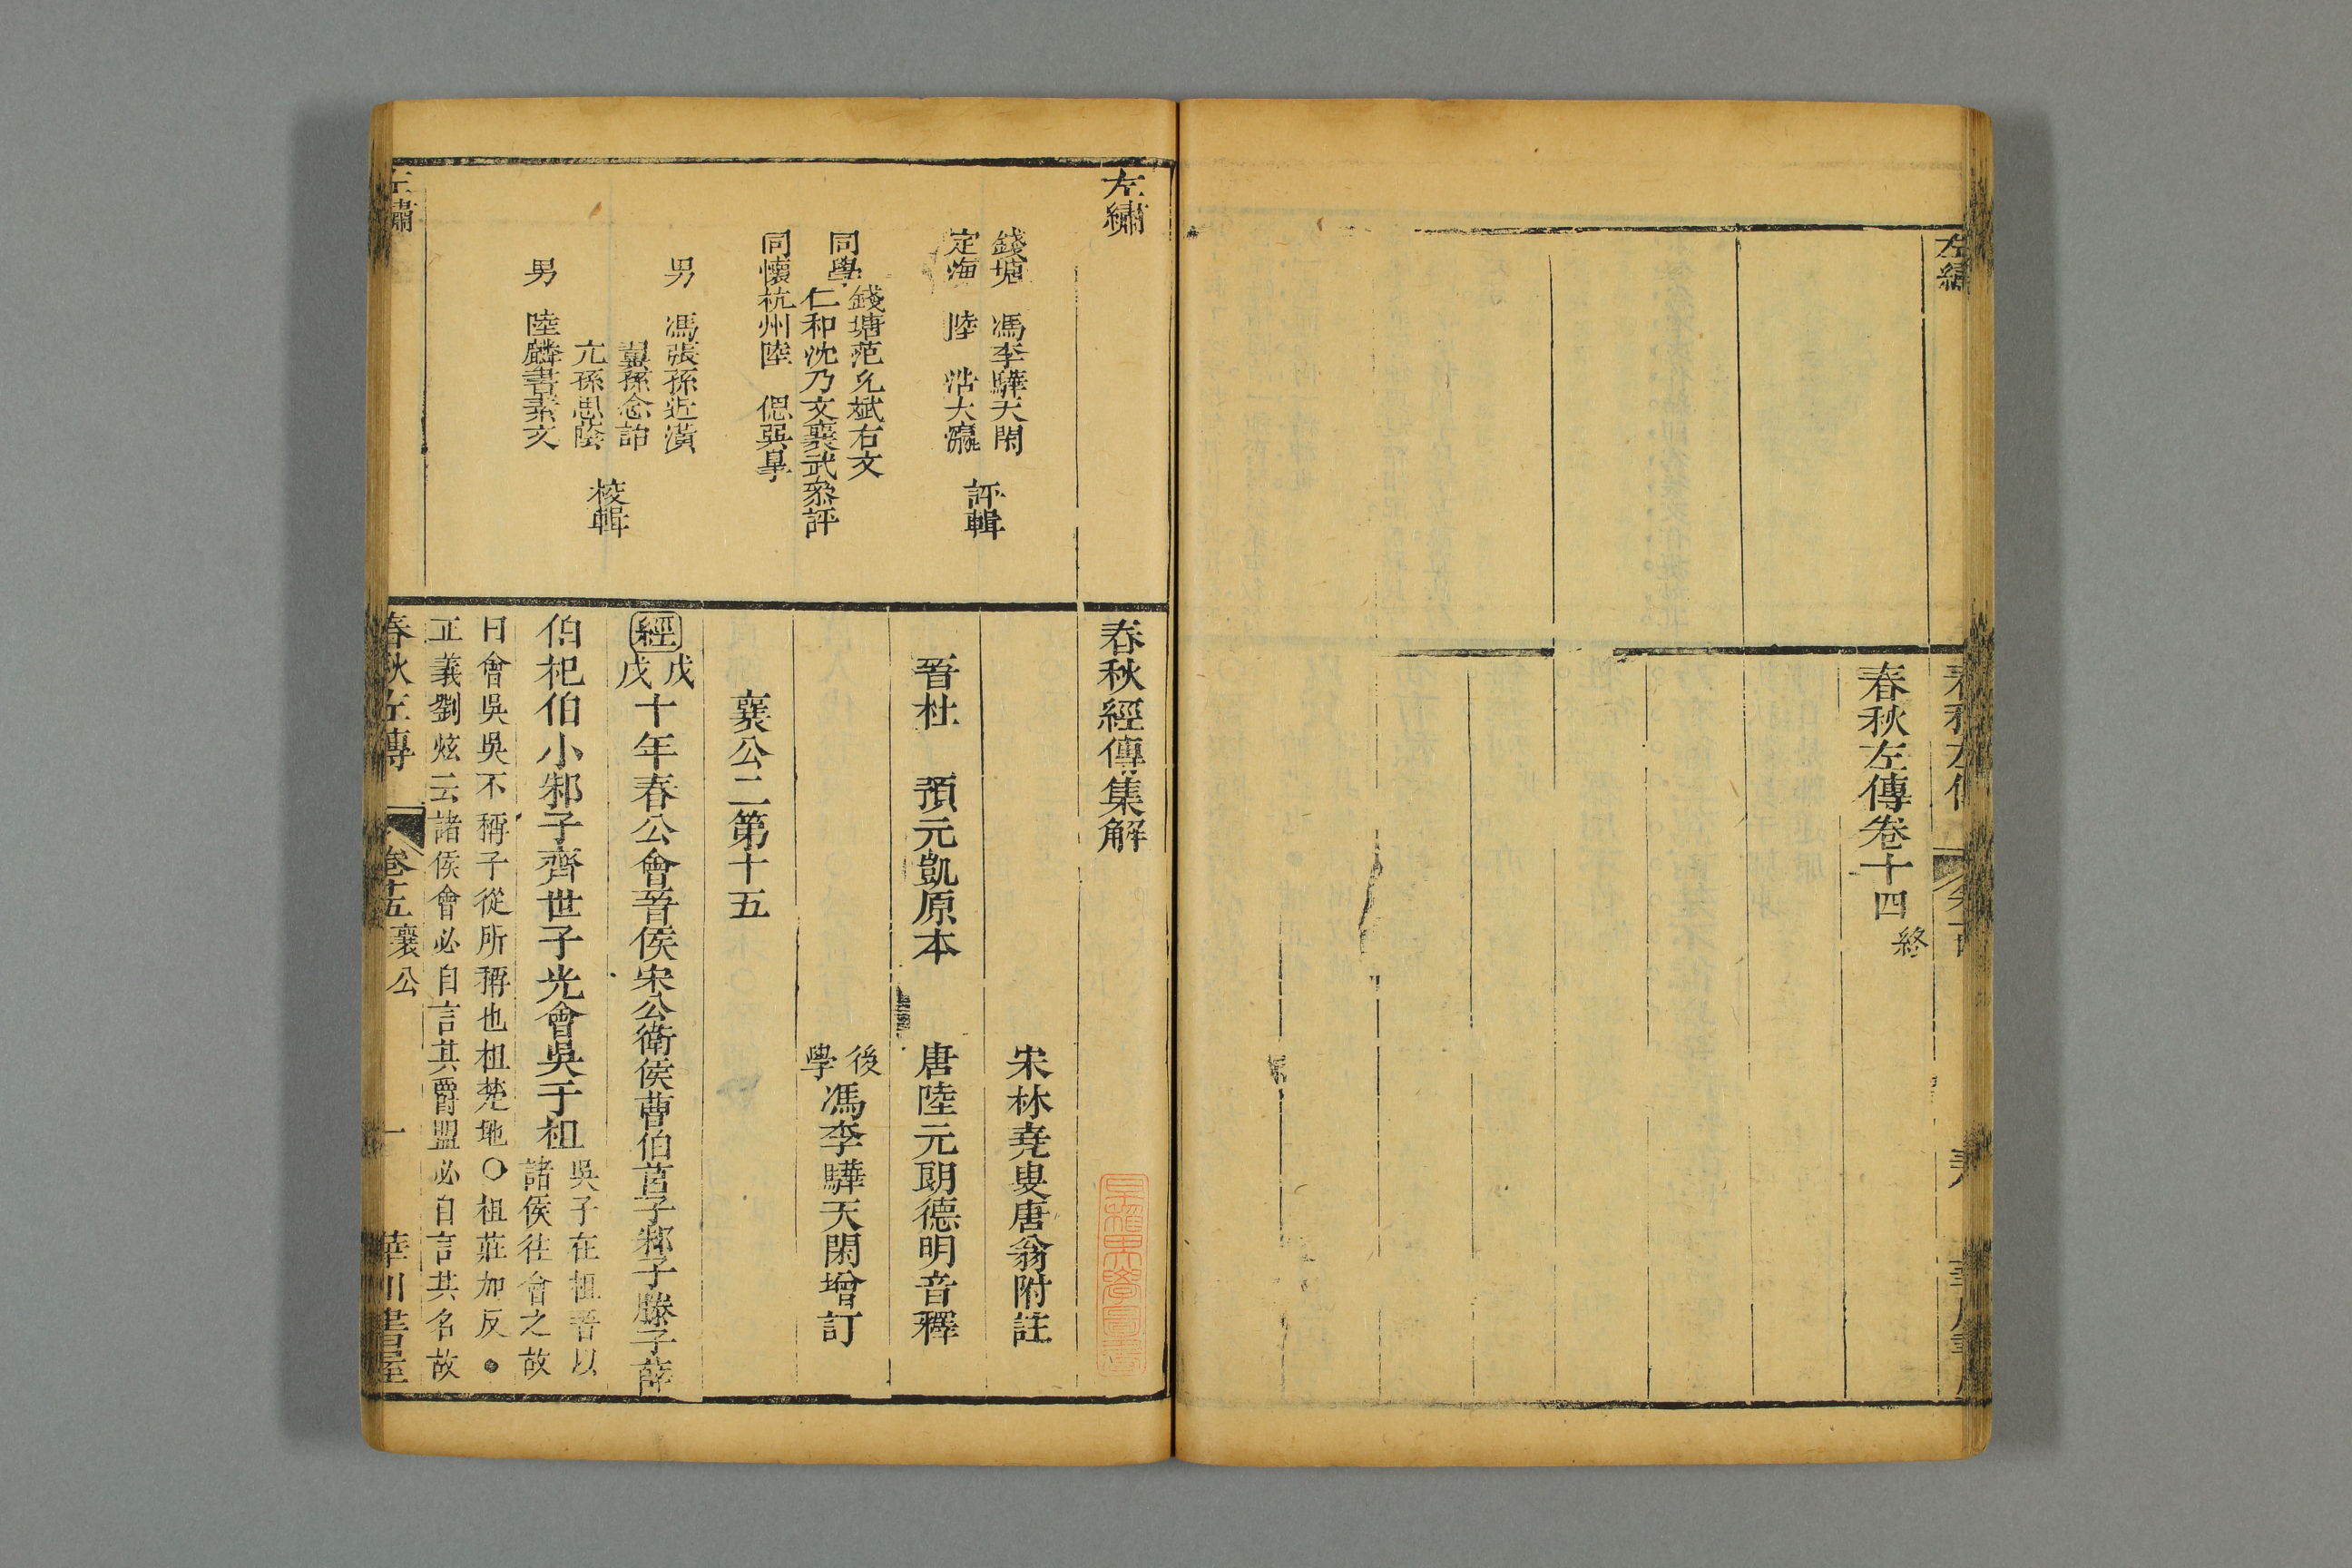 左繡
春秋左傳卷十四終
左繡
錢塘 馮李驊天閑
定海 陸 浩大瀛
評輯
同學
錢塘范允斌右文
仁和沈乃文襄武
同懷杭州陸 偲巽皐
叅評
男 馮張孫近潢
翼孫念詒
亢孫思蔭
男 陸麟書素文
校輯
春秋經傳集解
宋林堯叟唐翁附註
晉杜 預元凱原本
唐陸元朗德明音釋
後學馮李驊天閑增訂
襄公二第十五
經戊戌十年春公會晉侯宋公衛侯曹伯莒子邾子滕子薛
伯杞伯小邾子齊世子光會吳于柤吳子在柤晉以
諸侯往會之故
曰會吳吳不稱子從所稱也柤楚地〇柤莊加反●
正義劉炫云諸侯會必自言其爵盟必自言其名故
春秋左傳 卷十五襄公 一 華川書屋